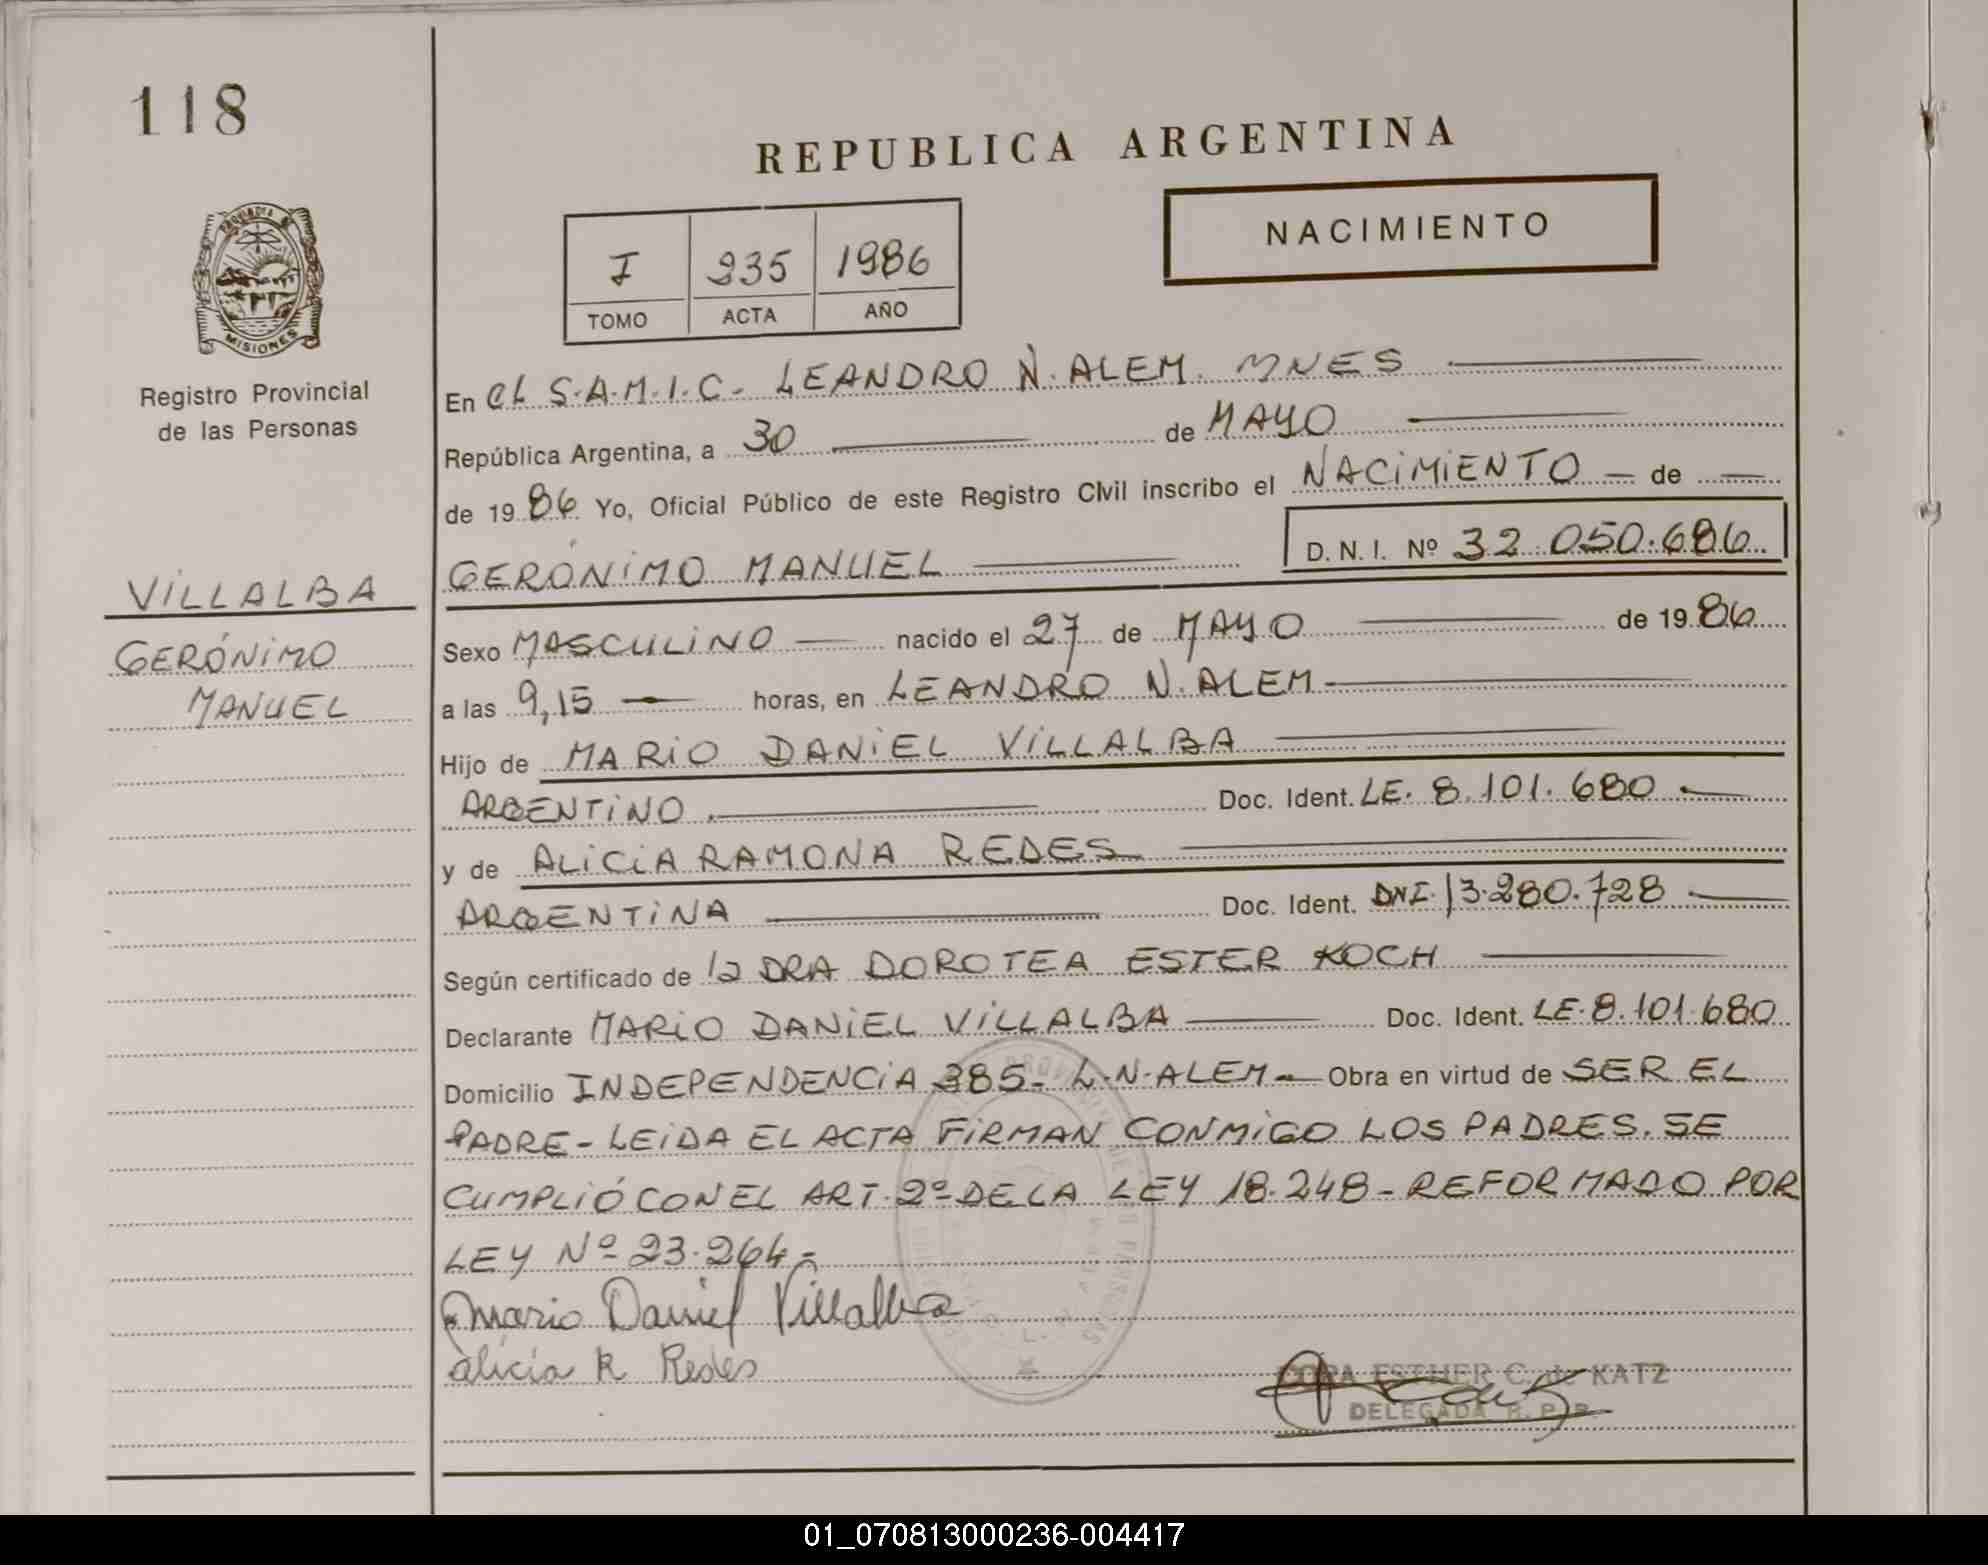 118
REPUBLICA ARGENTINA
NACIMIENTO
I 235 1986
TOMO ACTA AÑO
PROVINCIA DE
MISIONES
Registro Provincial
de las Personas
VILLALBA
GERÓNIMO
MANUEL
En el S.A.M.I.C. LEANDRO N. ALEM. MNES
República Argentina, a 30 de MAYO
de 1986 Yo, Oficial Público de este Registro Civil inscribo el NACIMIENTO de
GERÓNIMO MANUEL D.N.I. Nº 32.050.686
Sexo MASCULINO nacido el 27 de MAYO de 1986
a las 9,15 horas, en LEANDRO N. ALEM
Hijo de MARIO DANIEL VILLALBA
ARGENTINO Doc. Ident. LE. 8.101.680
y de ALICIA RAMONA REDES
ARGENTINA Doc. Ident. DNI. 13.280.728
Según certificado de la DRA DOROTEA ESTER KOCH
Declarante MARIO DANIEL VILLALBA Doc. Ident. LE. 8.101.680
Domicilio INDEPENDENCIA 385- L.N.ALEM- Obra en virtud de SER EL
PADRE- LEIDA EL ACTA FIRMAN CONMIGO LOS PADRES. SE
CUMPLIÓ CON EL ART. 2º DE LA LEY 18.248- REFORMADO POR
LEY Nº 23.264-
Mario Daniel Villalba
alicia R Redes
ESTHER C. de KATZ
DELEGADA R. P. P.
01_070813000236-004417